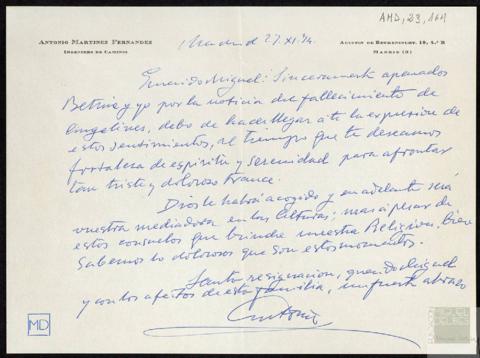 AMD, 23, 164
ANTONIO MARTINEZ FERNANDEZ
INGENIERO DE CAMINOS
AGUSTIN DE BETHENCOURT, 19, 4.º B
MADRID (3)
Madrid 27.XI.74.
Querido Miguel: Sinceramente apenados
y yo por la noticia del fallecimiento de
Angelines, debo de hacer llegar a ti la expresión de
estos sentimientos, al tiempo que te deseamos
fortaleza de espíritu y serenidad para afrontar
tan triste y doloroso trance.
Dios le habrá acogido y en adelante será
vuestra mediadora en las alturas; mas a pesar de
estos consuelos que brinde nuestra Religión, bien
sabemos lo dolorosos que son estos momentos.
Santa resignación, querido Miguel
y con los afectos de esta familia, un fuerte abrazo
Antonio
MD